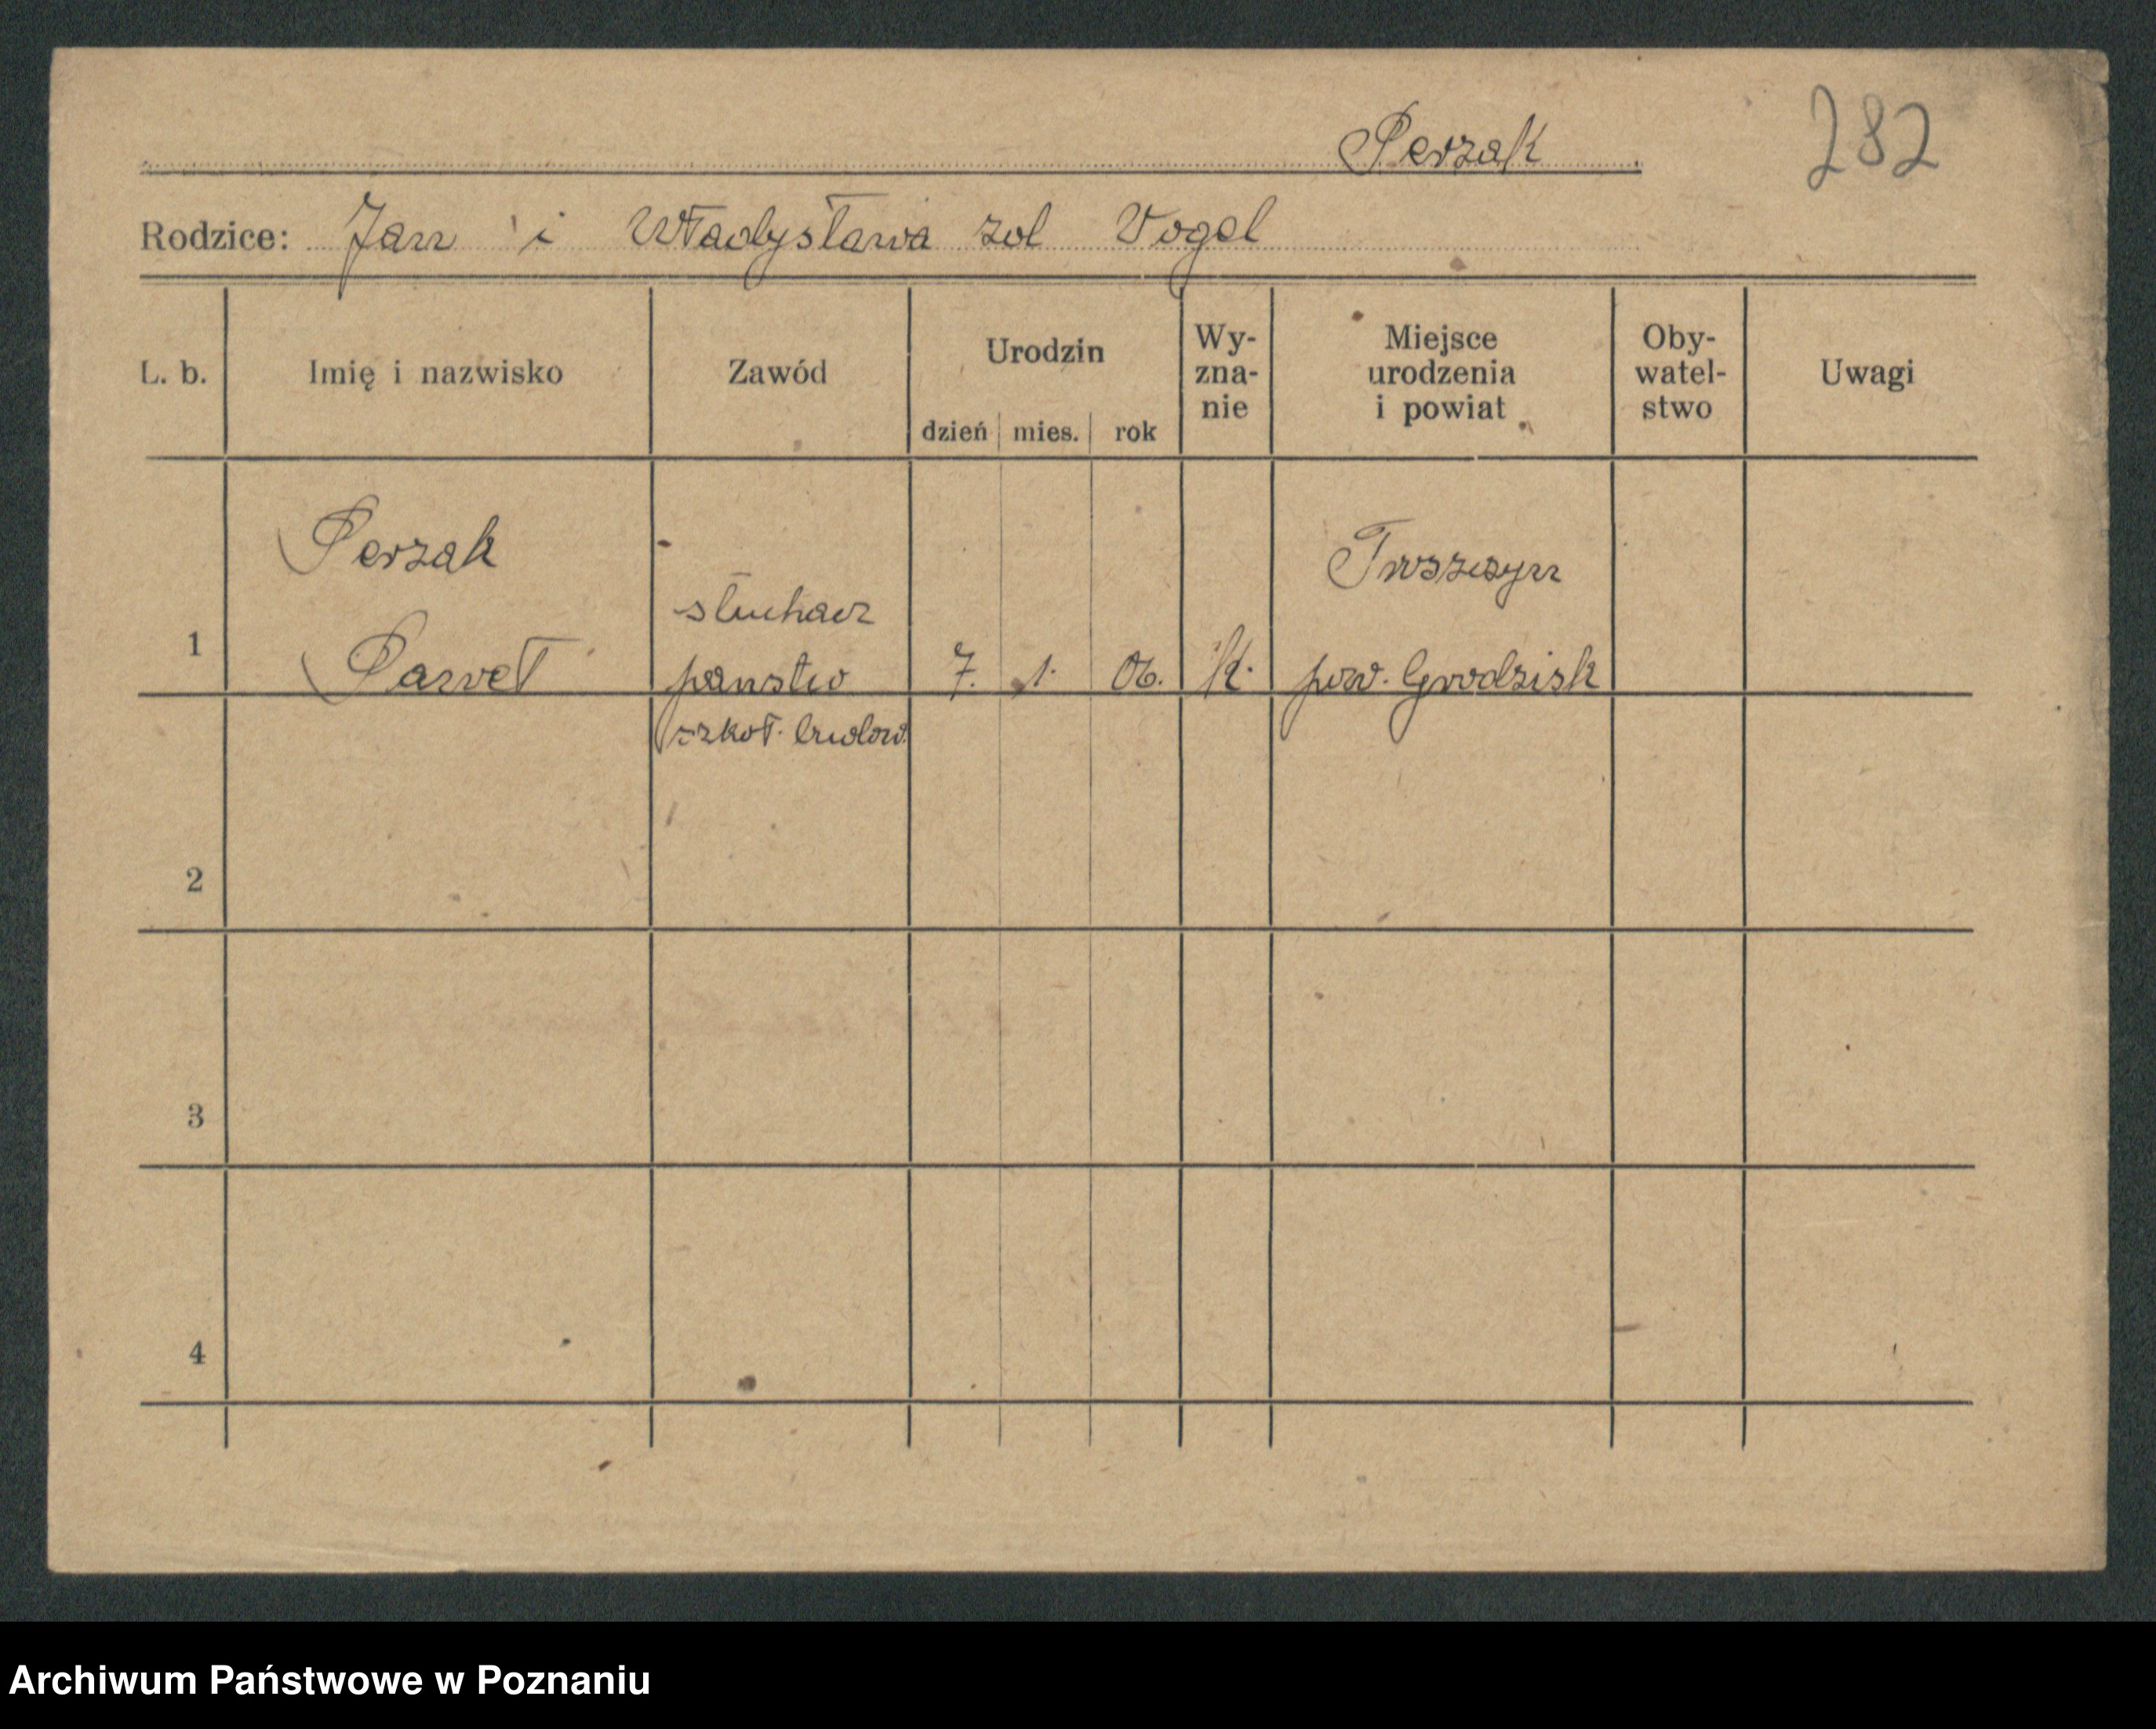 282
Perzak
Rodzice: Jan i Władysława zol Vogel
L. b.
Imię i nazwisko
Zawód
Urodzin
dzień mies. rok
Wy-
zna-
nie
Miejsce
urodzenia
i powiat
Oby-
watel-
stwo
Uwagi
1
Perzak
Paweł
słuchacz
państw
szkoł. budow.
7. 1. 06.
K.
pow. Grodzisk
2
3
4
Archiwum Państwowe w Poznaniu